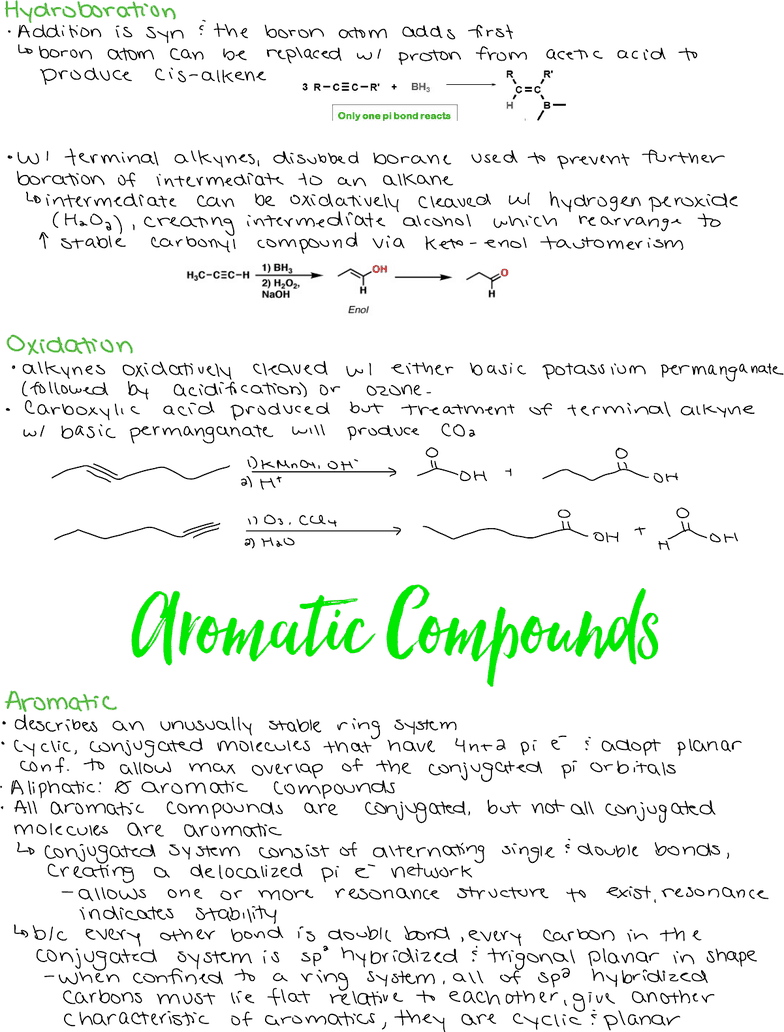 Hydroboration
• Addition is syn & the boron atom adds first
↳ boron atom can be replaced w/ proton from acetic acid to
produce cis-alkene
3 R–C≡C–R' + BH₃ → R R' C=C H B
Only one pi bond reacts
• w/ terminal alkynes, disubbed borane used to prevent further
boration of intermediate to an alkane
↳ intermediate can be oxidatively cleaved w/ hydrogen peroxide
(H₂O₂), creating intermediate alcohol which rearrange to
↑ stable carbonyl compound via keto-enol tautomerism
H₃C–C≡C–H 1) BH₃ 2) H₂O₂, NaOH → OH H → O H
Enol
Oxidation
• alkynes oxidatively cleaved w/ either basic potassium permanganate
(followed by acidification) or ozone.
• Carboxylic acid produced but treatment of terminal alkyne
w/ basic permanganate will produce CO₂
1) KMnO₄, OH⁻ 2) H⁺ → O OH + O OH
1) O₃, CCl₄ 2) H₂O → O OH + O H OH
Aromatic Compounds
Aromatic
• describes an unusually stable ring system
• cyclic, conjugated molecules that have 4n+2 pi e⁻ & adopt planar
conf. to allow max overlap of the conjugated pi orbitals
• Aliphatic: Ø aromatic compounds
• All aromatic compounds are conjugated, but not all conjugated
molecules are aromatic
↳ conjugated system consist of alternating single & double bonds,
creating a delocalized pi e⁻ network
– allows one or more resonance structure to exist, resonance
indicates stability
↳ b/c every other bond is double bond, every carbon in the
conjugated system is sp² hybridized & trigonal planar in shape
– when confined to a ring system, all of sp² hybridized
carbons must lie flat relative to each other, give another
characteristic of aromatics, they are cyclic & planar